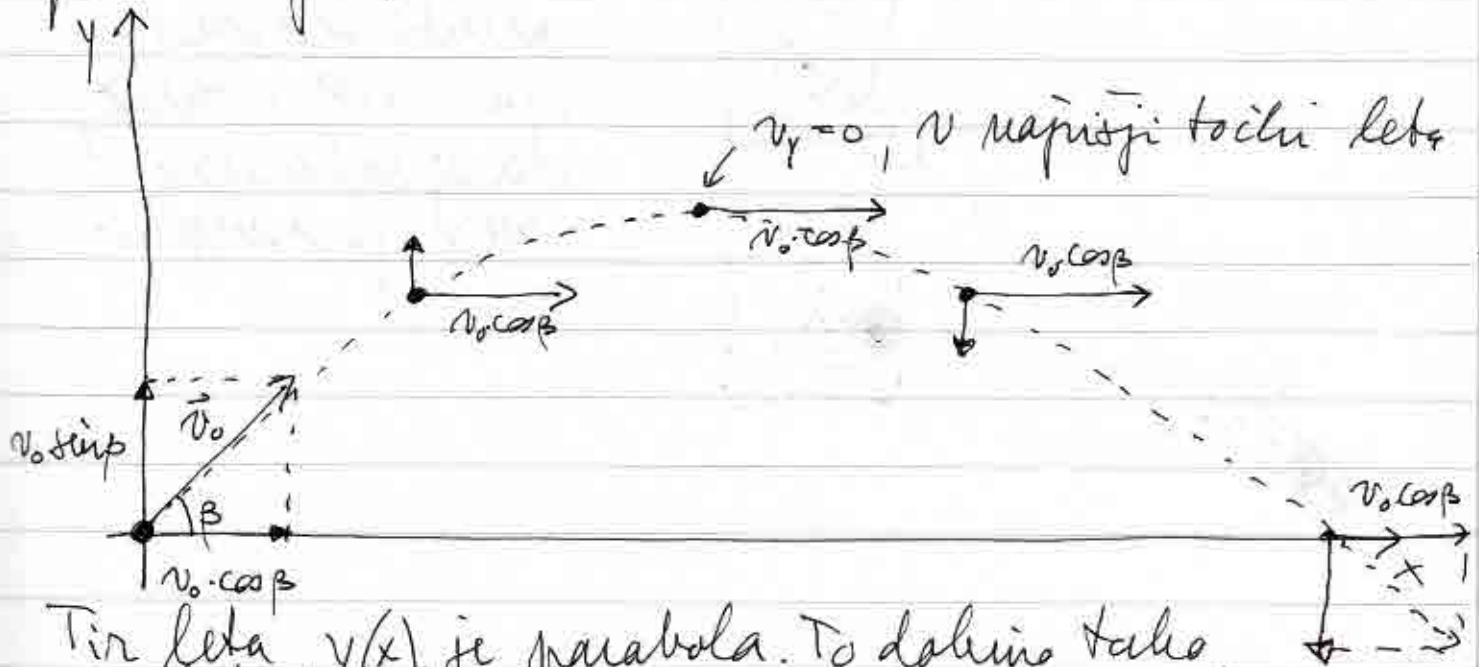 y
v_y = 0, v najvišji točki leta
v₀·cosβ
v₀cosβ
v₀·cosβ
v₀ sinβ
v⃗₀
β
v₀cosβ
x
v₀·cosβ
Tir leta y(x) je parabola. To dobimo tako